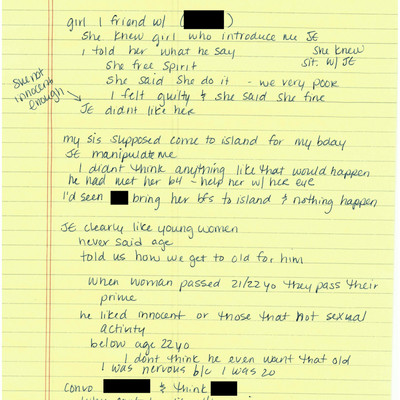 girl I friend w/ (
She knew girl who introduce me JE
I told her what he say
She knew
sit. w/ JE
She free spirit
She said she do it - we very poor
she not
innocent
enough
I felt guilty & she said she fine
JE didnt like her
my sis supposed come to island for my bday
JE manipulate me
I didnt think anything like that would happen
he had met her b4 - help her w/ her eye
I'd seen bring her bfs to island & nothing happen
JE clearly like young women
never said age
told us how we get to old for him
when woman passed 21/22 yo they pass their
prime
he liked innocent or those that not sexual
activity
below age 22 yo
I dont think he even want that old
I was nervous b/c I was 20
Convo & think